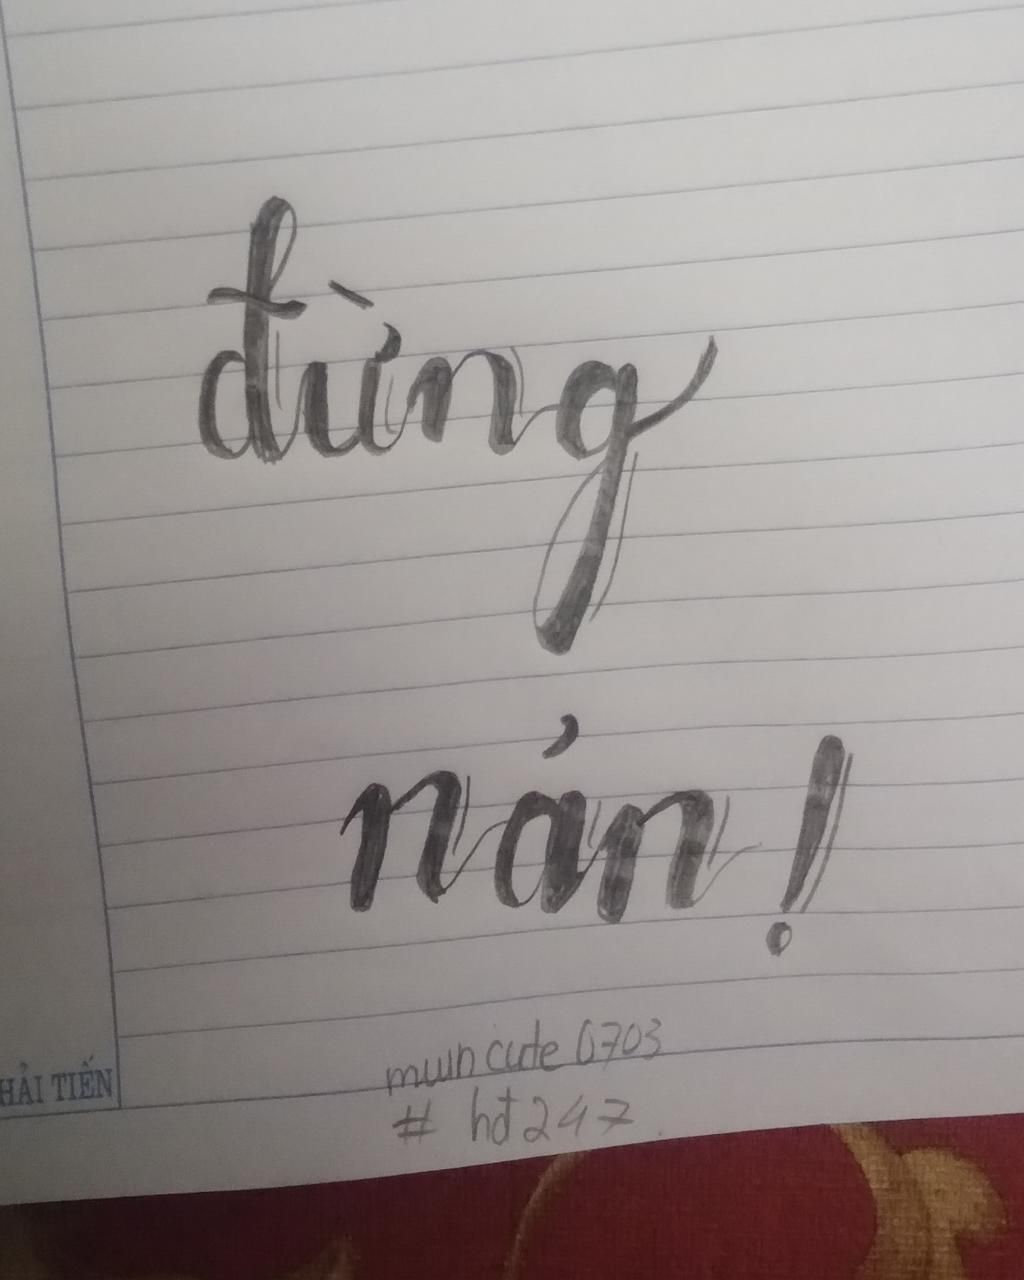 đừng
nản!
HẢI TIẾN
muncute0703
# hđ247